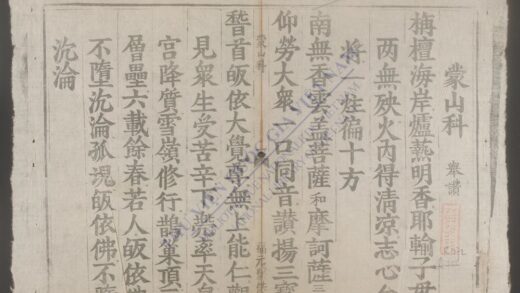 蒙山科 舉讚
栴檀海岸爐爇明香耶輸子母
两無殃火内得清凉志心
将一炷徧十方
南無香雲盖菩薩 和 摩訶薩 三
仰勞大衆一口同音讃揚三寳
蒙山科
稽首皈依大覺尊無上能仁觀
見衆生受苦辛下兠率天
宫降質雪嶺修行鵲巢頂三
層壘六載餘春若人皈依
不墮沉淪孤魂皈依佛不墮
沉淪